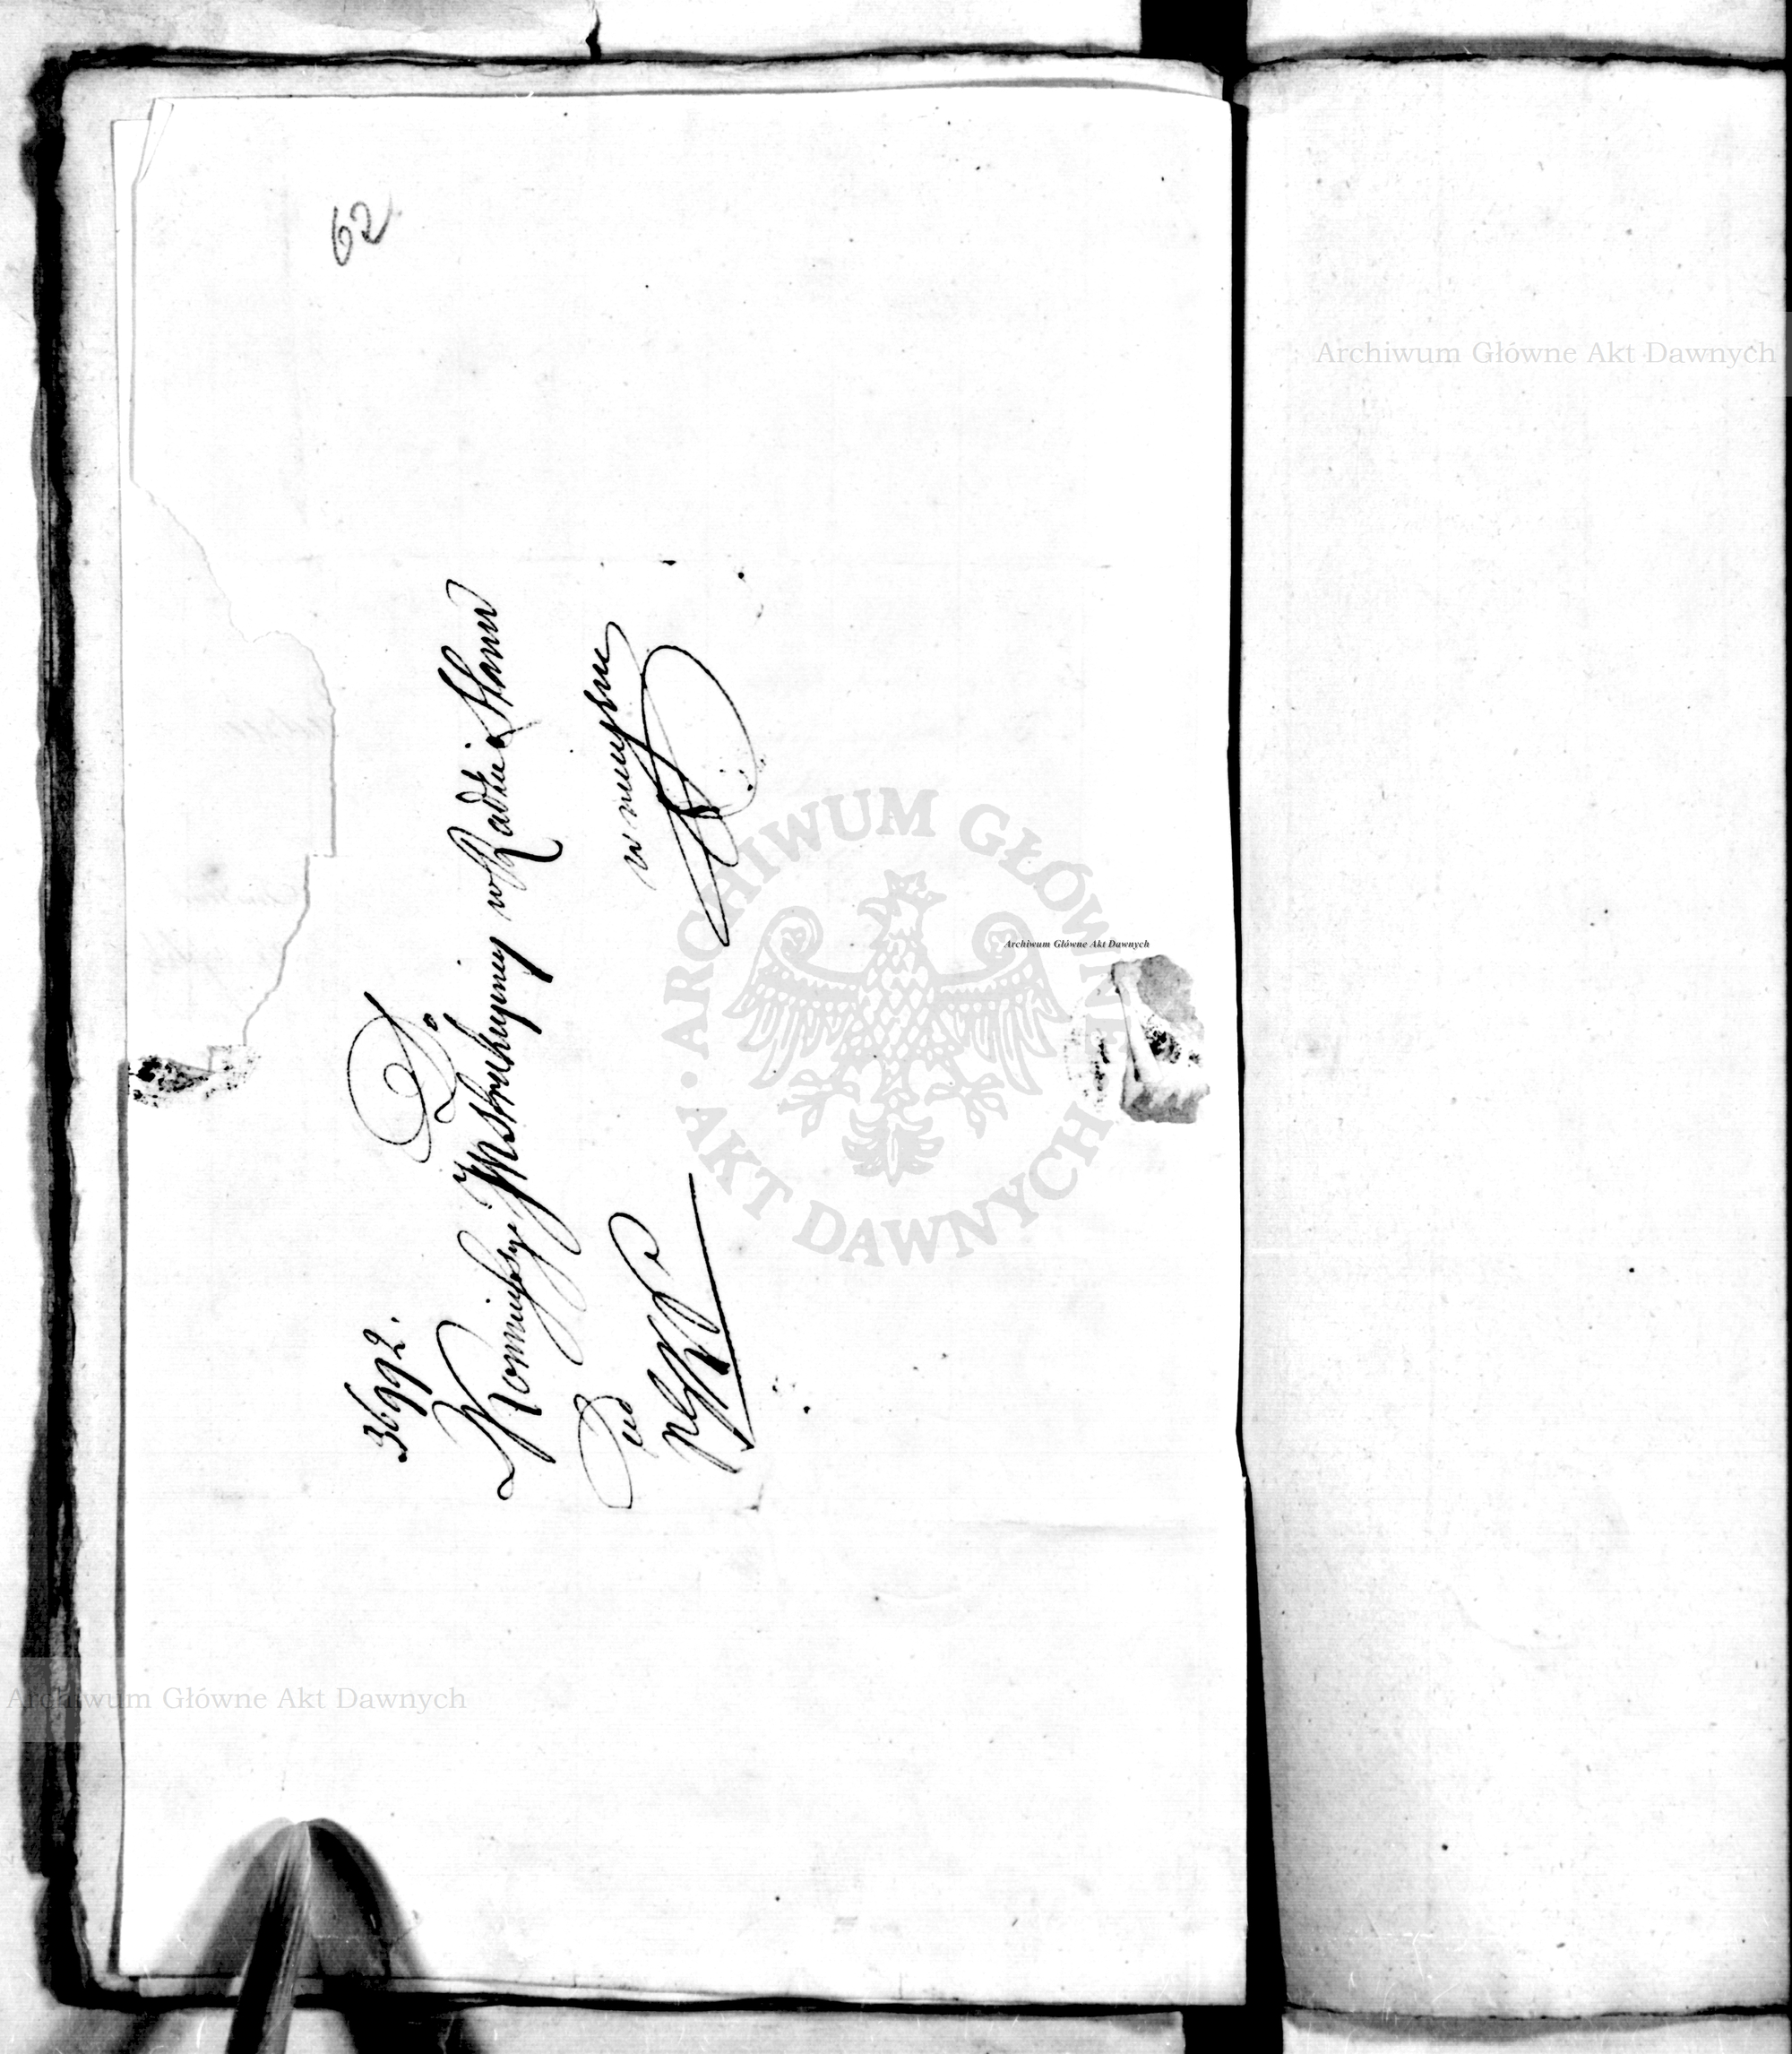 62
36992.
Do
Kommissyi Instrukcyiney w Radzie Stanu
w mieyscu
Archiwum Główne Akt Dawnych
Archiwum Główne Akt Dawnych
Archiwum Główne Akt Dawnych
ARCHIWUM GŁÓWNE AKT DAWNYCH